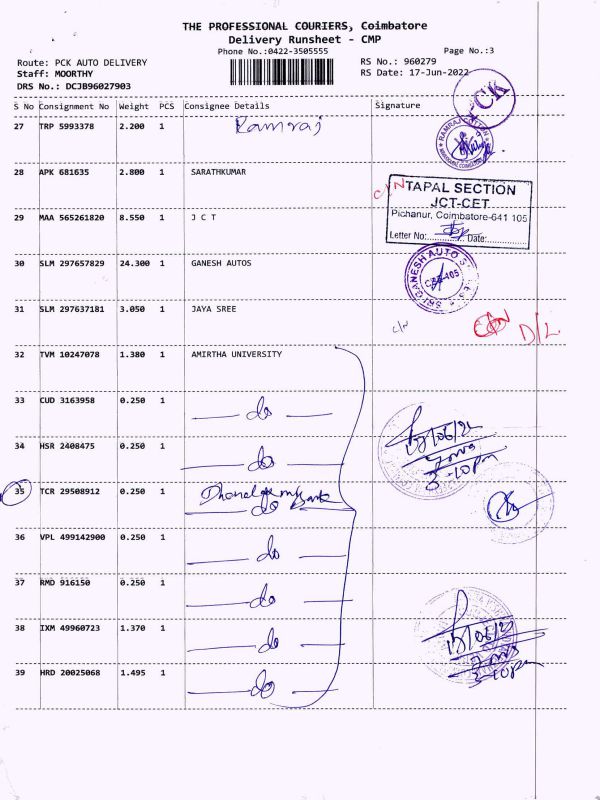 THE PROFESSIONAL COURIERS, Coimbatore
Delivery Runsheet - CMP
Phone No.:0422-3505555
Page No.:3
Route: PCK AUTO DELIVERY
RS No.: 960279
Staff: MOORTHY
RS Date: 17-Jun-2022
DRS No.: DCJB96027903
PCK
S No Consignment No Weight PCS Consignee Details Signature
27 TRP 5993378 2.200 1 Ramraj
28 APK 681635 2.800 1 SARATHKUMAR
C/N
TAPAL SECTION
JCT-CET
Pichanur, Coimbatore-641 105
Letter No:.............. Date:..............
29 MAA 565261820 8.550 1 J C T
30 SLM 297657829 24.300 1 GANESH AUTOS
SRI GANESH AUTO
31 SLM 297637181 3.050 1 JAYA SREE
C/N
D/L
32 TVM 10247078 1.380 1 AMIRTHA UNIVERSITY
33 CUD 3163958 0.250 1 do
34 HSR 2408475 0.250 1 do
3-10pm
35 TCR 29508912 0.250 1 Bank
do
36 VPL 499142900 0.250 1 do
37 RMD 916150 0.250 1 do
38 IXM 49960723 1.370 1 do
39 HRD 20025068 1.495 1 do
3-10pm